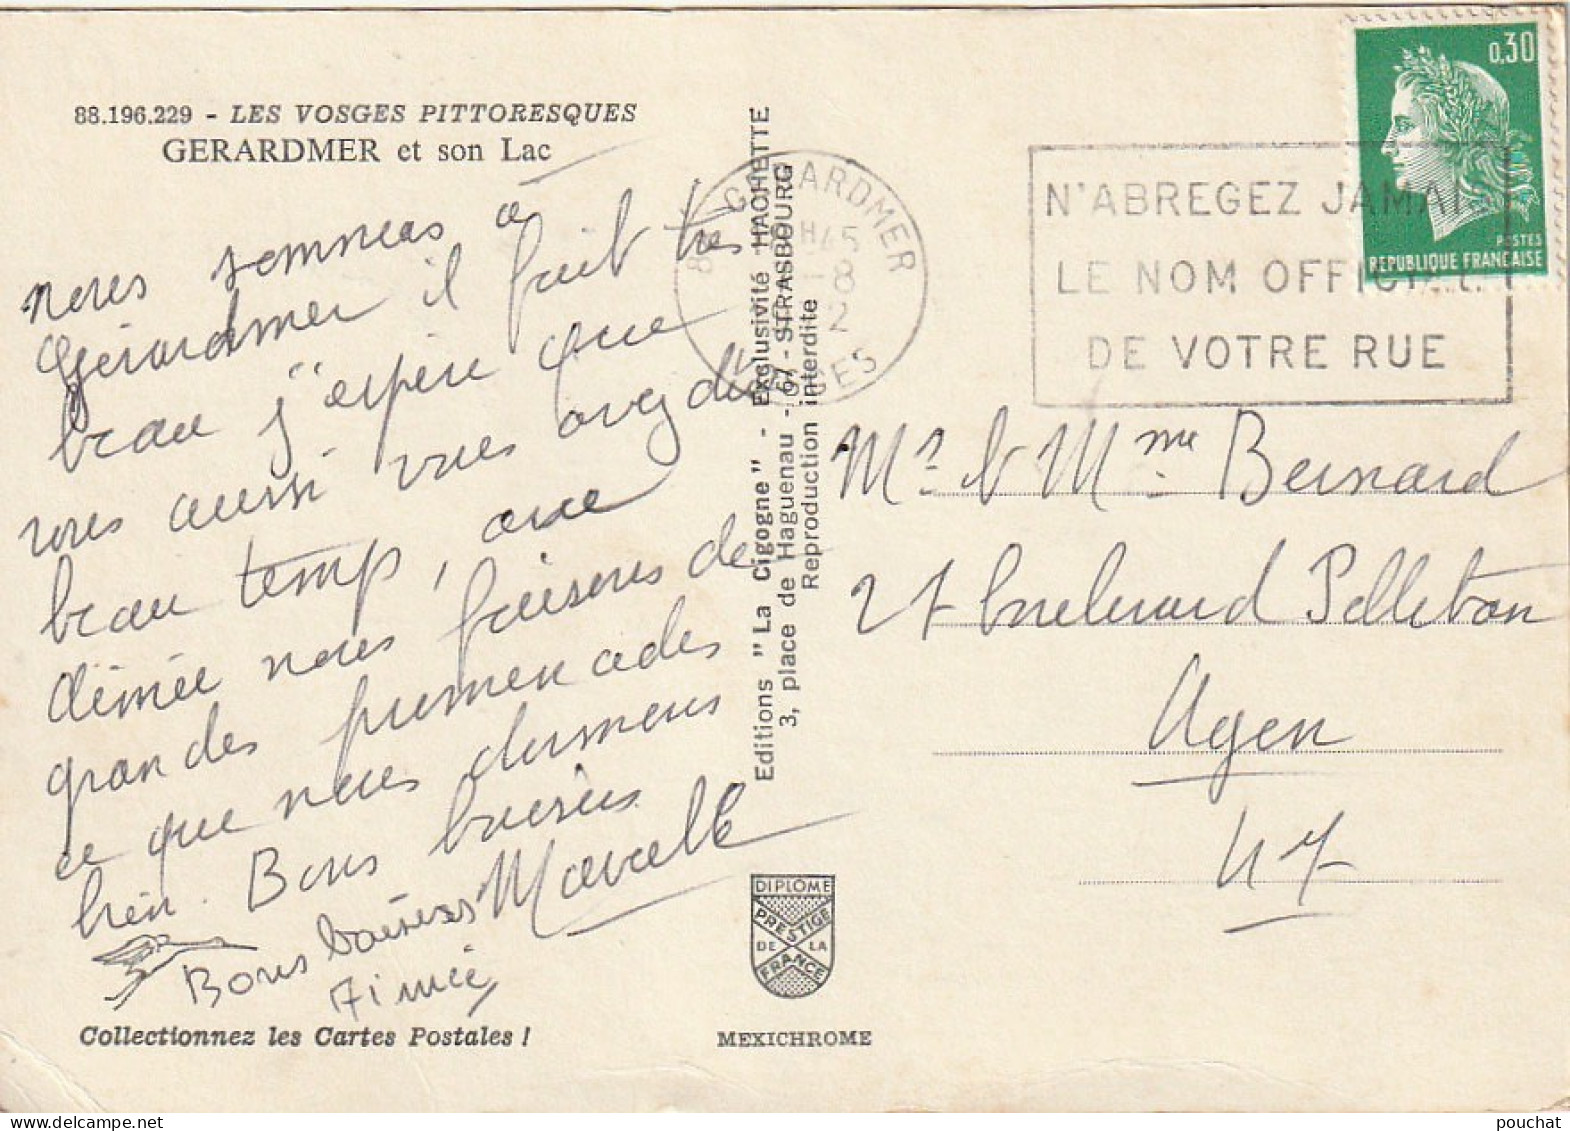 88.196.229 - LES VOSGES PITTORESQUES
GERARDMER et son Lac
nous sommes a
Gérardmer il fait très
beau j'espère que
vous aussi vous avez du
beau temps, avec
Aimée nous faisons de
grandes promenades
ce que nous dormons
bien. Bons baisers
Marcelle
Bons baisers
Aimée
Collectionnez les Cartes Postales !
Editions "La Cigogne" - Exclusivité HACHETTE
3, place de Haguenau - 67 - STRASBOURG
Reproduction interdite
DIPLÔME
PRESTIGE
DE LA
FRANCE
MEXICHROME
GERARDMER
H45
-8
2
VOSGES
N'ABREGEZ JAMAIS
LE NOM OFFICIEL
DE VOTRE RUE
0,30
POSTES
REPUBLIQUE FRANCAISE
Mr & Mme Bernard
27 boulevard Pelletan
Agen
47
pouchat